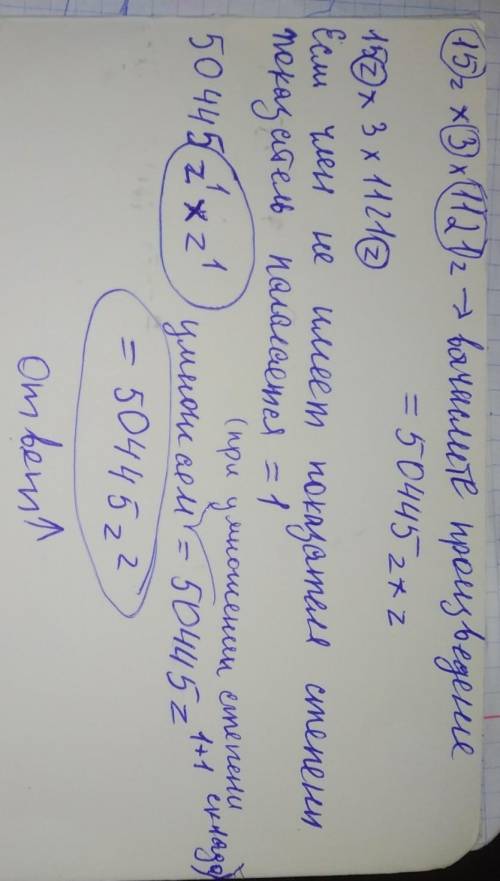 15z × 3 × 1121z → вычислите произведение
= 50445z × z
15z × 3 × 1121z
Если член не имеет показателя степени
показатель полагается = 1
(при умножении степени
50445 z¹ × z¹ умножаем = 50445z¹⁺¹ склад)
= 50445z²
Ответ↑